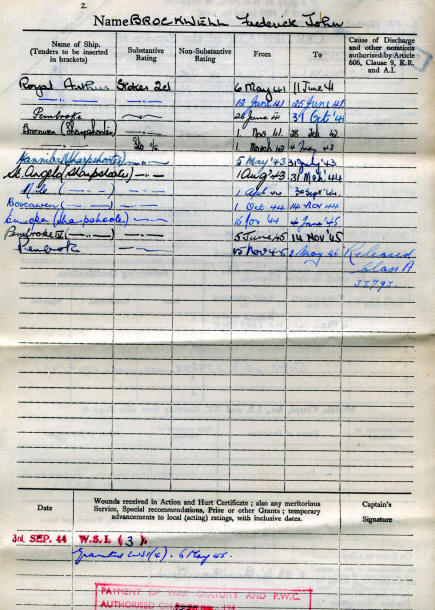 2.
Name BROCKWELL Frederick John
Name of Ship. (Tenders to be inserted in brackets) Substantive Rating Non-Substantive Rating From To Cause of Discharge and other notations authorised by Article 606, Clause 9, K.R. and A.I.
Royal Arthur Stoker 2cl 6 May 41 11 June 41
" 12 June 41 25 June 41
Pembroke 26 June 41 31 Oct '41
Boscawen (Sharpshooter) 1 Nov 41 28 Feb 42
Sto 1/c 1 March 42 4 May 43
Hannibal (Sharpshooter) 5 May '43 31 July '43
St. Angelo (Sharpshooter) 1 Aug '43 31 Mch '44
Nile (—"—) 1 Apl 44 30 Sept. 44
Boscawen (—"—) 1 Oct 44 14 Nov 44
(Sharpshooter) 15 Nov '44 4 June '45
Pembroke IV (—"—) 5 June 45 14 Nov '45
Pembroke 15 Nov 45 May 46 Released
Class A
Date Wounds received in Action and Hurt Certificate; also any meritorious Service, Special recommendations, Prize or other Grants; temporary advancements to local (acting) ratings, with inclusive dates. Captain's Signature
3rd. SEP. 44 W.S.I. (3).
Granted WSI(4). 6 May 45.
PAYMENT OF WAR GRATUITY AND P.W.C.
AUTHORISED ON 194